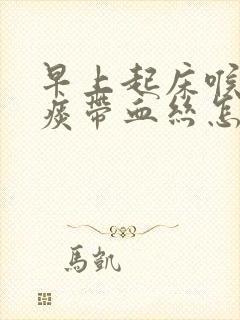 早上起床喉
痰帶血絲怎
馬凱